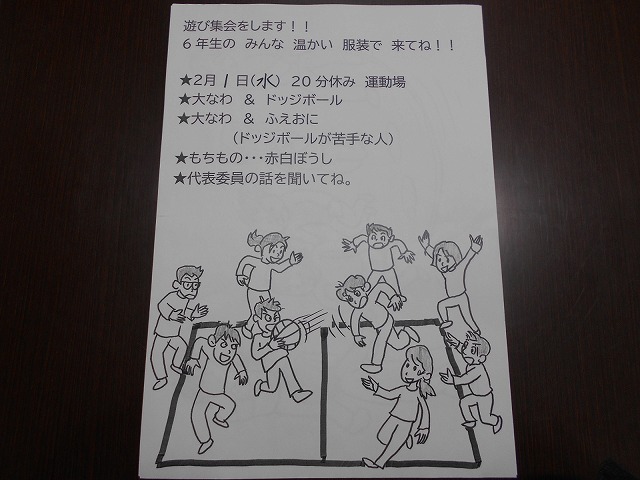 遊び集会をします！！
６年生の　みんな　温かい　服装で　来てね！！
★２月１日（水）　２０分休み　運動場
★大なわ　＆　ドッジボール
★大なわ　＆　ふえおに
（ドッジボールが苦手な人）
★もちもの・・・赤白ぼうし
★代表委員の話を聞いてね。